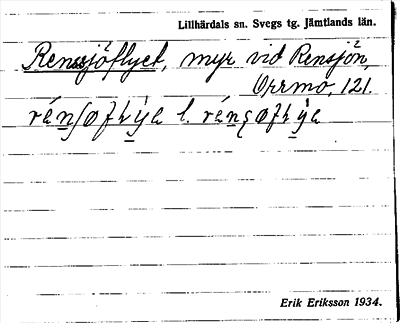 Lillhärdals sn. Svegs tg. Jämtlands län.
Rensjöflyet, myr vid Rensjön,
Orrmo, 121.
l.
Erik Eriksson 1934.